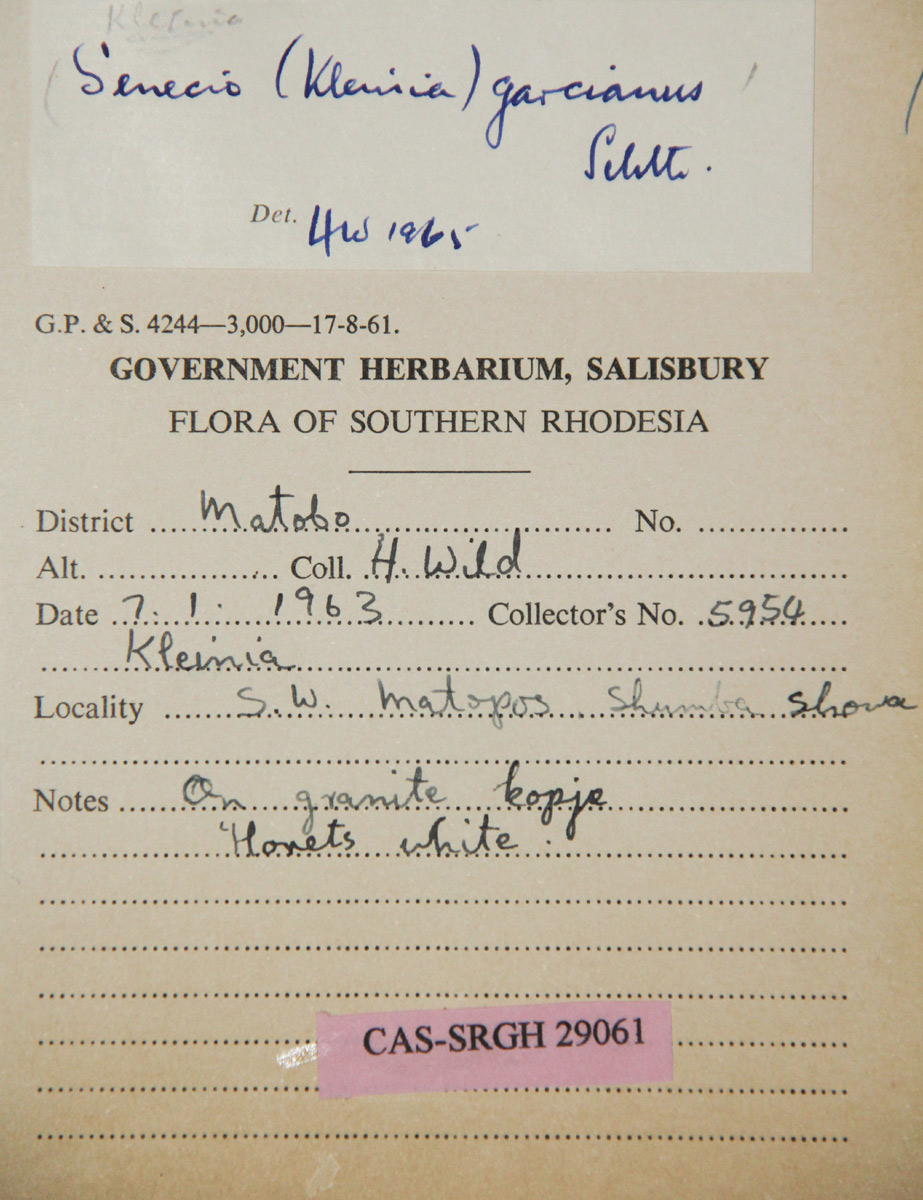 Kleinia
Senecio (Kleinia) garcianus
Det. HW 1965
G.P. & S. 4244—3,000—17-8-61.
GOVERNMENT HERBARIUM, SALISBURY
FLORA OF SOUTHERN RHODESIA
District Matobo No.
Alt. Coll. H. Wild
Date 7. 1. 1963 Collector's No. 5954
Kleinia
Locality S.W. Matopos Shumba Showa
Notes On granite kopje
white.
CAS-SRGH 29061